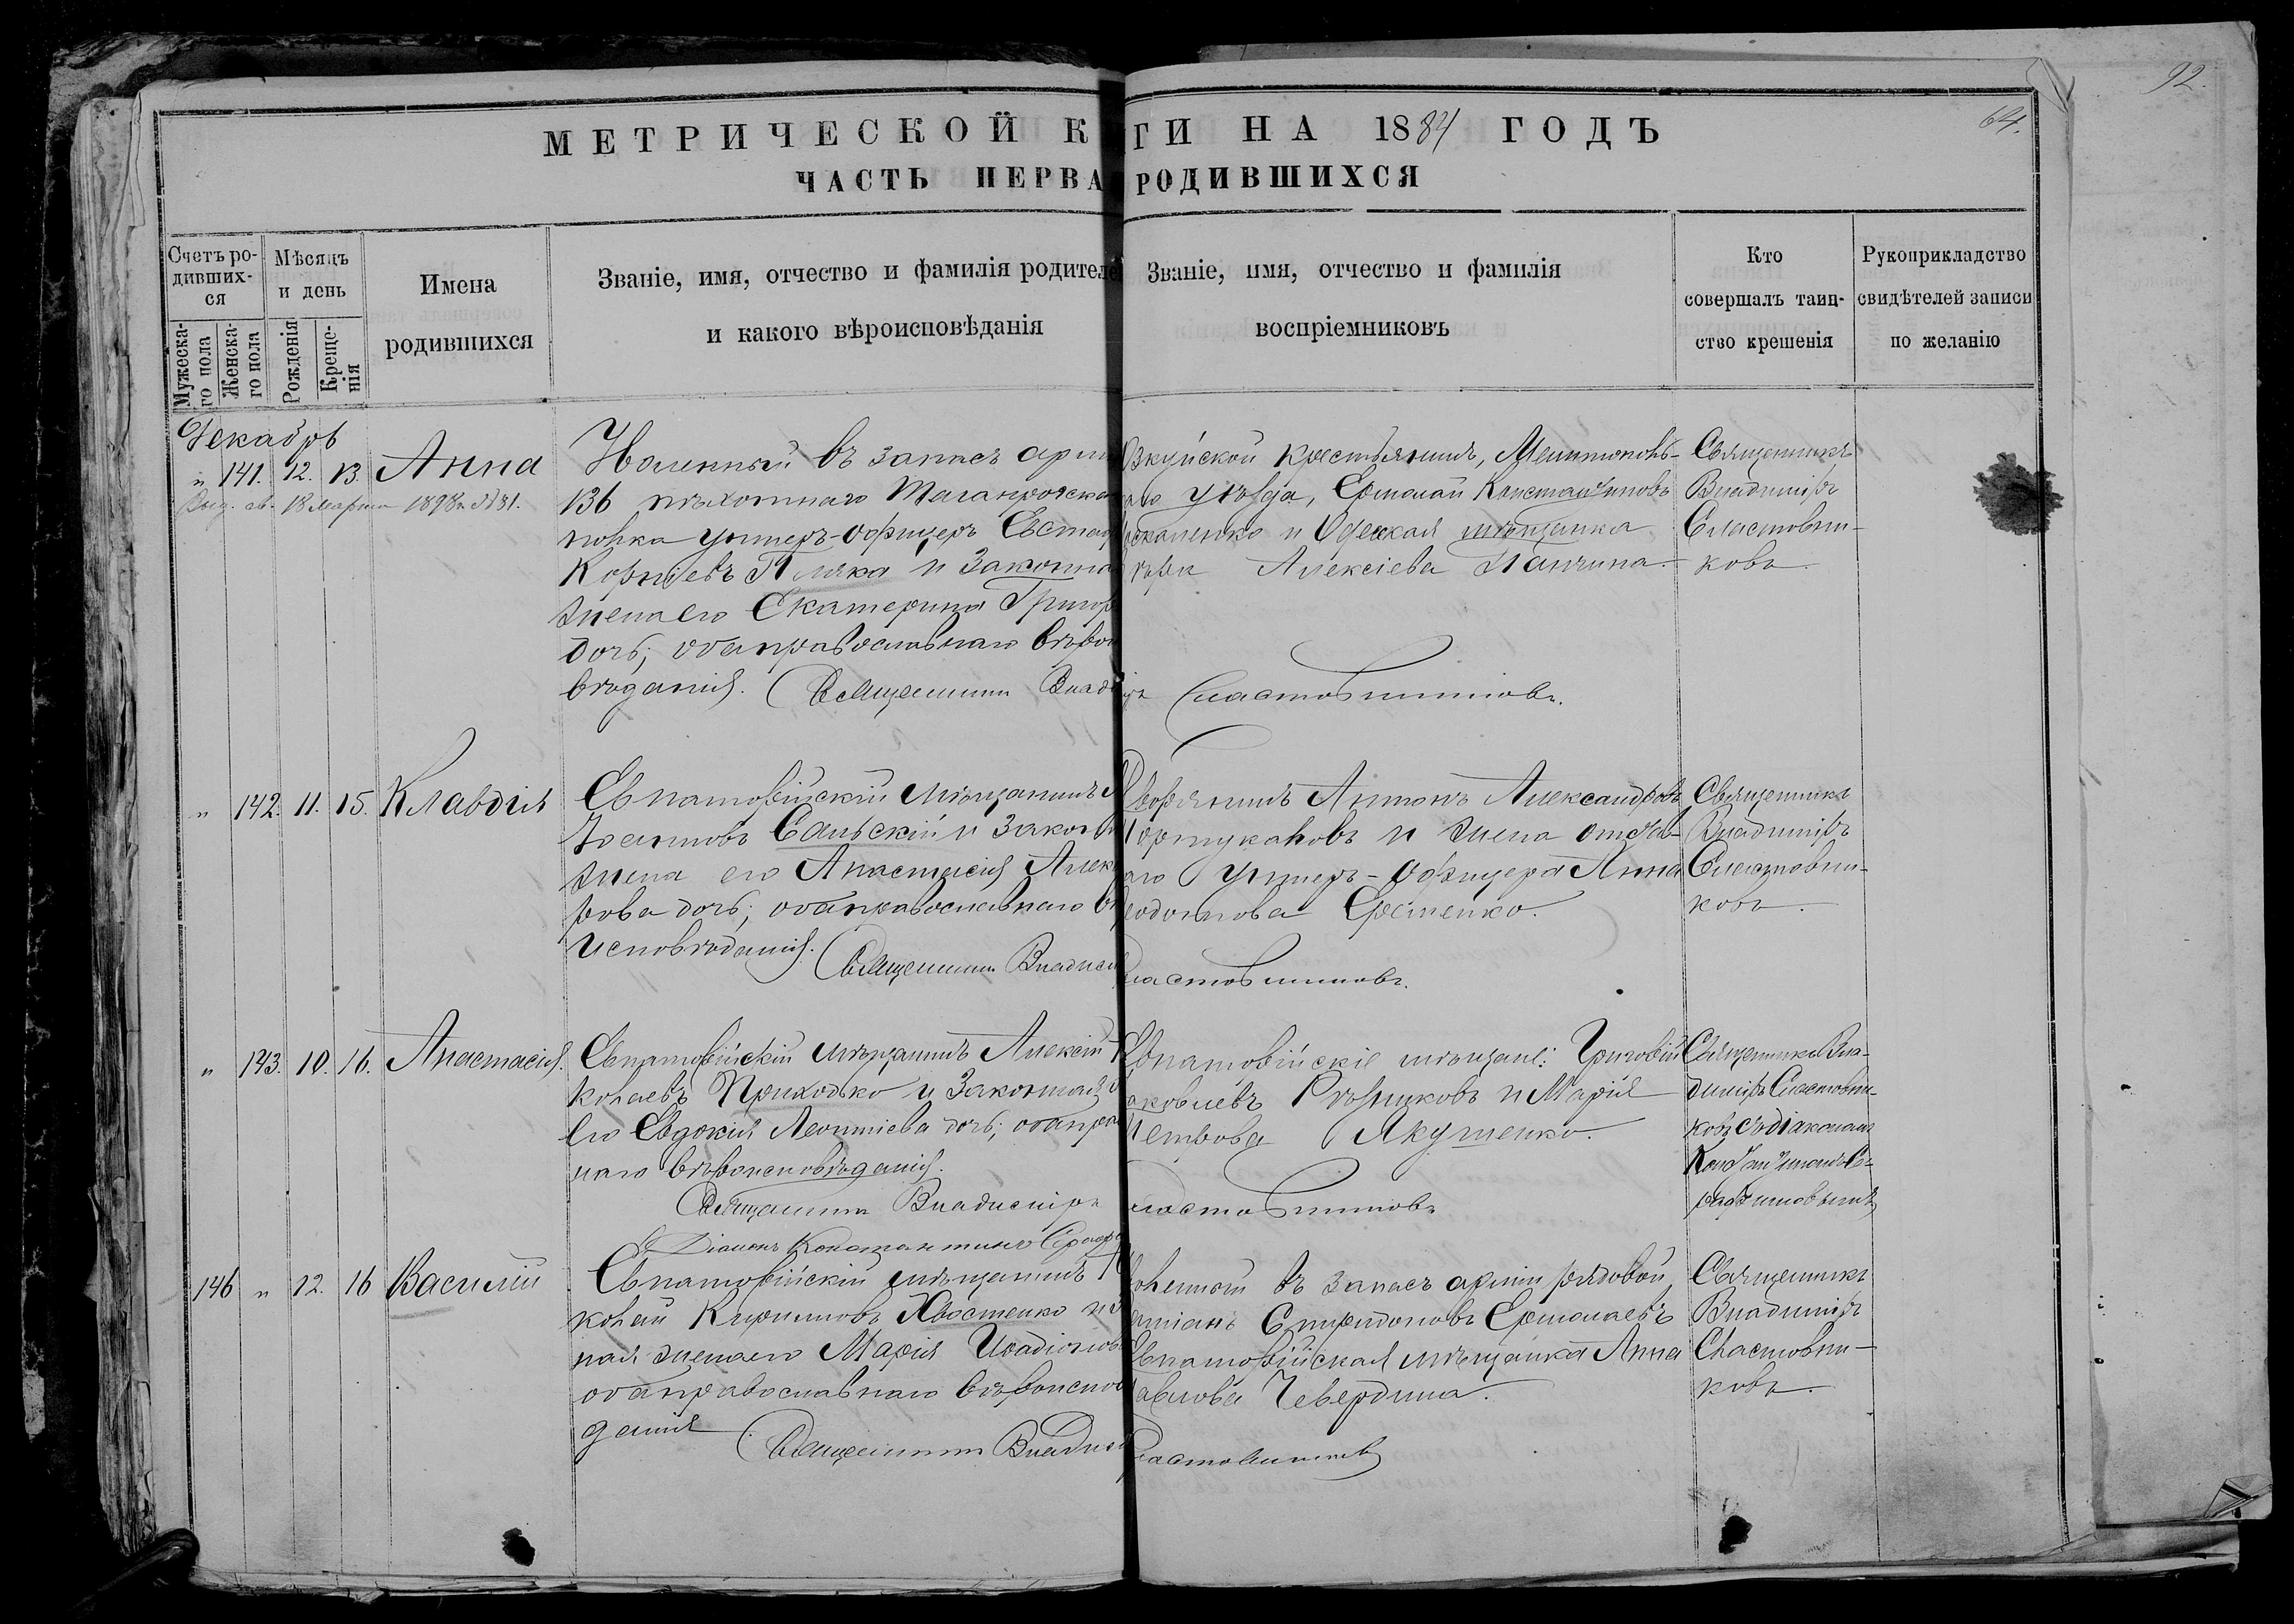 92.
64.
МЕТРИЧЕСКОЙ К ГИ НА 1884 ГОДЪ
ЧАСТЬ ПЕРВА РОДИВШИХСЯ
Счетъ ро-
дивших-
ся
Мужеска-
го пола
Женска-
го пола
Мѣсяцъ
и день
Рожденія
Креще-
нія
Имена
родившихся
Званіе, имя, отчество и фамилія родителе
и какого вѣроисповѣданія
Званіе, имя, отчество и фамилія
воспріемниковъ
Кто
совершалъ таин-
ство крешенія
Рукоприкладство
свидѣтелей записи
по желанію
Декабрь
" 141. 12. 13. Анна
13 марта 1898 № 31.
въ запасъ арм
136 пѣхотнаго Таганрогска
полка унтеръ-офицеръ Евста
Корнѣевъ Пляка и Законна
жена его Екатерина Григор
дочь; оба православнаго вѣрои
вѣданія. Священникъ Влад
крестьянинъ, Мелитопольс-
аго уѣзда, Ермолай Константиновъ
и Одеская мѣщанка
Алексіева Панчина.
Сластовниковъ.
Священникъ
Владиміръ
Сластовни-
ковъ.
" 142. 11. 15. Клавдія
Евпаторійскій мѣщанинъ
Сальскій и закон
жена его Анастасія Алек
рова дочь; оба православнаго в
исповѣданія. Священникъ Владим
Дворянинъ Антонъ Александровъ
и жена отстав-
аго Унтеръ-Офицера Анна
Ерестенко.
Сластовниковъ.
Священникъ
Владиміръ
Сластовни-
ковъ.
" 143. 10. 16. Анастасія.
Евпаторійскій мѣщанинъ Алексій
колаевъ Приходько и Законная
его Евдокія Леонтіева дочь; оба пра
наго вѣроисповѣданія.
Священникъ Владиміръ
Діаконъ Константинъ Сераф
Евпаторійскіе мѣщане: Григорій
Яковлевъ Рѣзниковъ и Марія
Петрова Якушенко.
Сластовниковъ
Священникъ Вла-
диміръ Сластовни-
ковъ съ діакономъ
Константиномъ Се-
рафимовымъ
146 " 12. 16 Василій
Евпаторійскій мѣщанинъ Ни
колай Кириловъ Хвостенко и З
ная жена его Марія
оба православнаго вѣроиспов
данія Священникъ Владим
воленной въ запасъ арміи рядовой
Спиридоновъ Ермолаевъ
Евпаторійская мѣщанка Анна
Павлова Чевердина.
Сластовниковъ
Священникъ
Владиміръ
Сластовни-
ковъ.